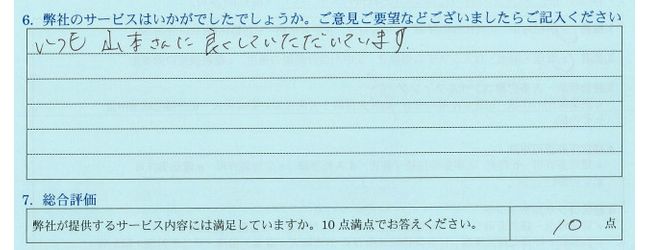 6. 弊社のサービスはいかがでしたでしょうか。ご意見ご要望などございましたらご記入ください
いつも 山本さんに 良くしていただいています
7. 総合評価
弊社が提供するサービス内容には満足していますか。10点満点でお答えください。 10 点